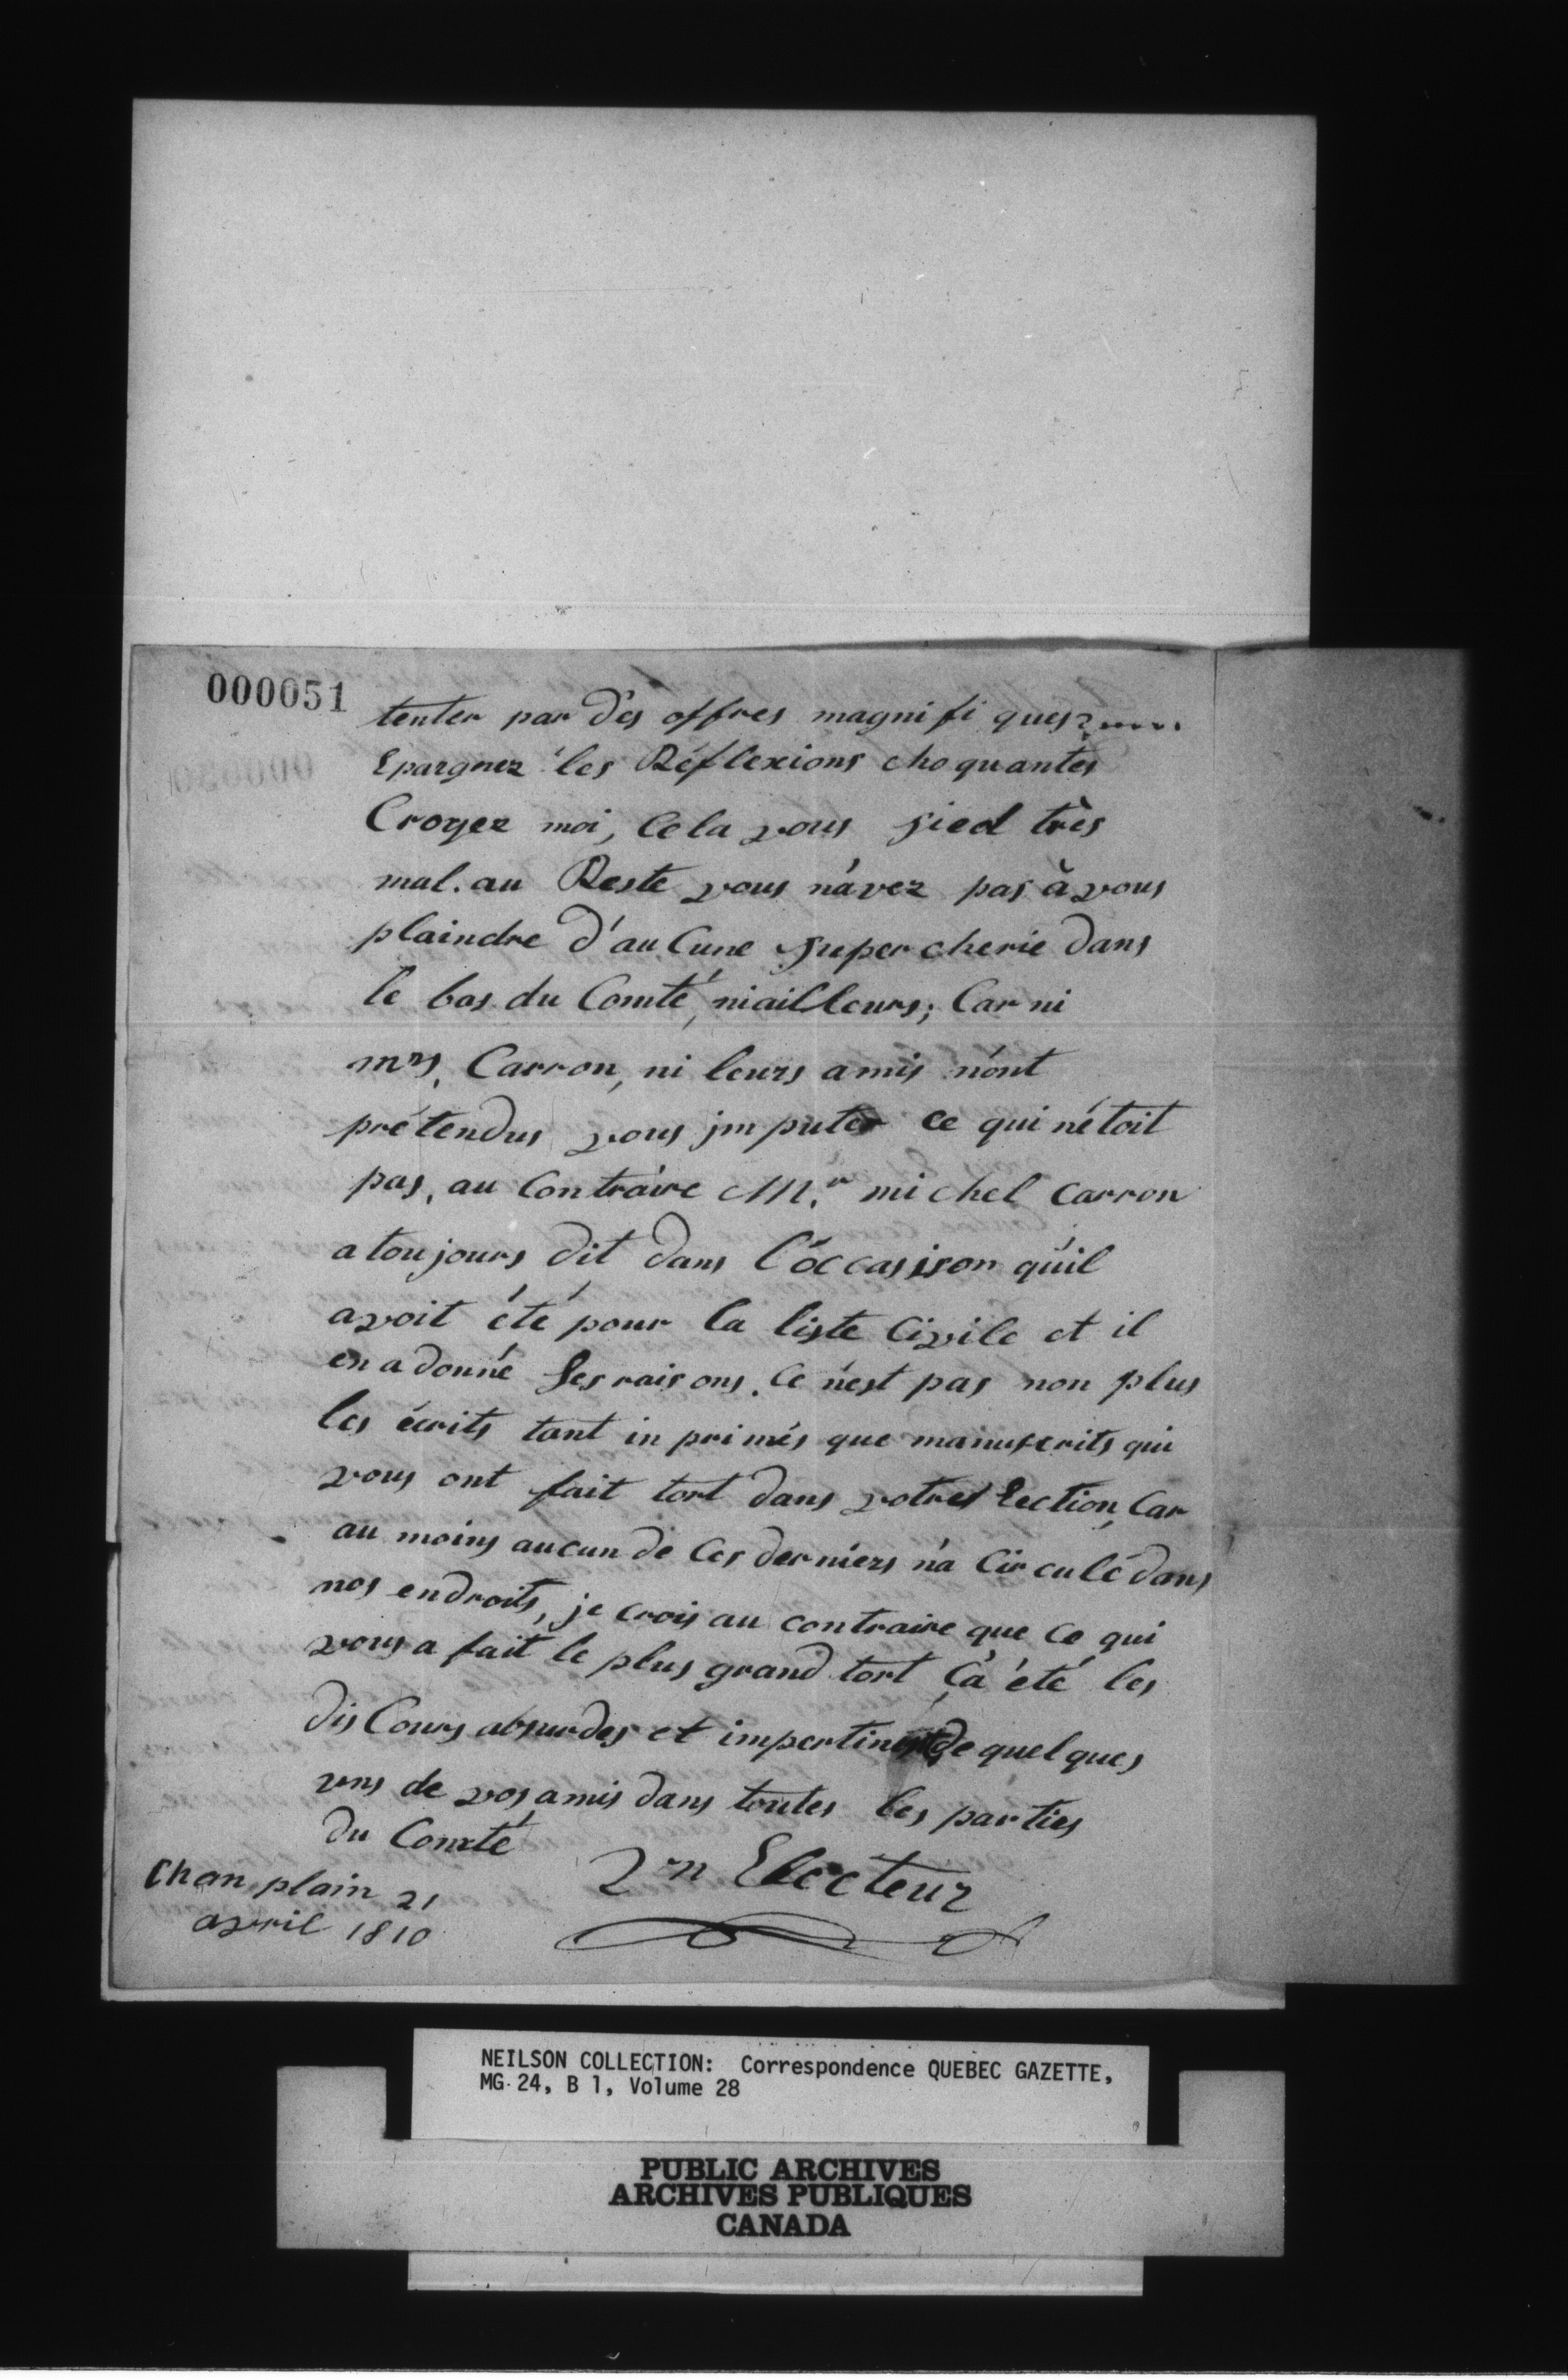 000051
tenter par des offres magnifiques?.....
Epargnez les Réflexions choquantes
Croyez moi, Cela vous sied très
mal. au Reste vous n'avez pas à vous
plaindre d'auCune supercherie dans
le bas du Comté, ni ailleurs; Car ni
mrs, Carron, ni leurs amis n'ont
prétendus vous jmputer ce qui n'étoit
pas, au Contraire Mr. michel Carron
a toujours dit dans l'occasison qu'il
avoit été pour la liste Civile et il
en a donné ses raisons. Ce n'est pas non plus
les écrits tant inprimés que manuscrits qui
vous ont fait tort dans votre Election, Car
au moins aucun de Ces derniers n'a Circulé dans
nos endroits, je crois au contraire que Ce qui
vous a fait le plus grand tort Ça été les
disCours absurdes et impertinents de quelques
uns de vos amis dans toutes les parties
du Comté
Un Electeur
Chanplain 21
avril 1810
NEILSON COLLECTION: Correspondence QUEBEC GAZETTE,
MG 24, B 1, Volume 28
PUBLIC ARCHIVES
ARCHIVES PUBLIQUES
CANADA